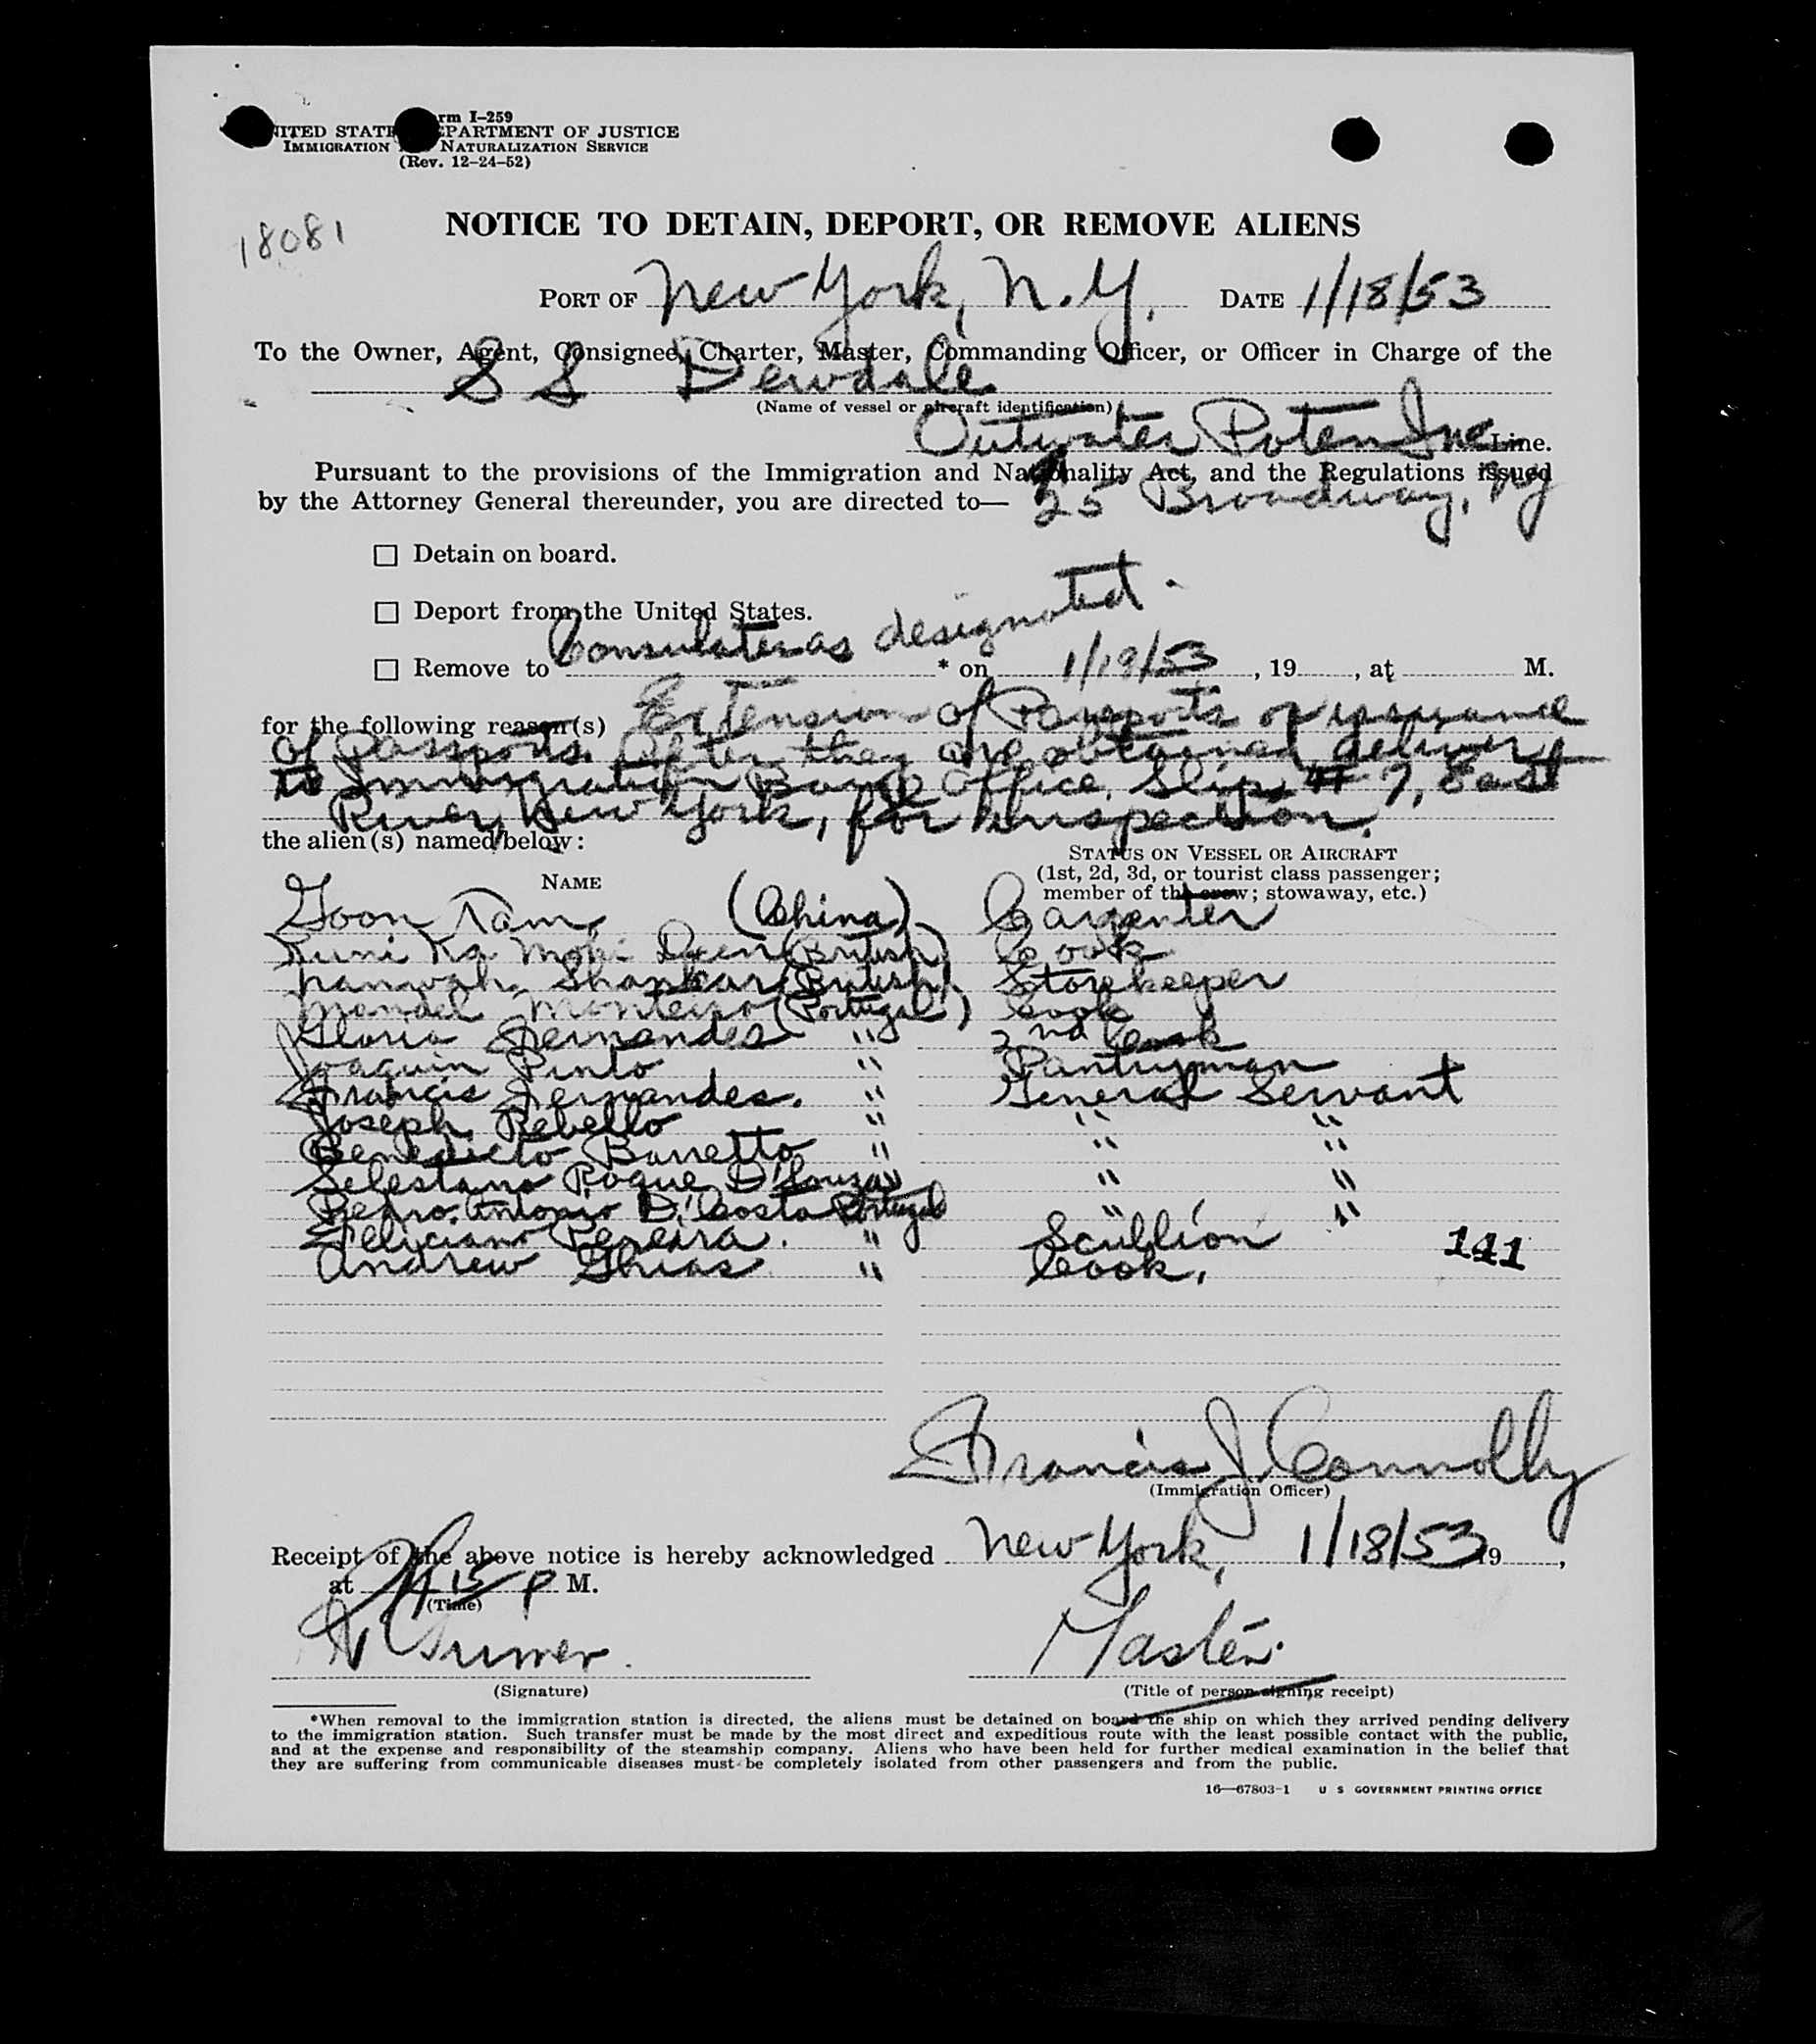 Form I-259
UNITED STATES DEPARTMENT OF JUSTICE
IMMIGRATION AND NATURALIZATION SERVICE
(Rev. 12-24-52)
18081
NOTICE TO DETAIN, DEPORT, OR REMOVE ALIENS
PORT OF New York, N.Y. DATE 1/18/53
To the Owner, Agent, Consignee, Charter, Master, Commanding Officer, or Officer in Charge of the
S S Dewdale
(Name of vessel or aircraft identification)
Outwater Poten Inc Line.
Pursuant to the provisions of the Immigration and Nationality Act, and the Regulations issued
by the Attorney General thereunder, you are directed to— 25 Broadway, NY
☐ Detain on board.
☐ Deport from the United States.
☐ Remove to Consulates as designated * on 1/19/53, 19 , at M.
for the following reason(s) Extension of Passports or issuance
of Passports. After they are obtained, deliver
to Immigration Barge Office, Slip # 7, East
River, New York, for inspection.
the alien(s) named below:
STATUS ON VESSEL OR AIRCRAFT
(1st, 2d, 3d, or tourist class passenger;
NAME
member of the crew; stowaway, etc.)
Goon Tam, (China) Carpenter
Deen (British) Cook
Shankar (British) Storekeeper
Manuel Monteiro (Portugal) Cook
Fernandes " 2nd Cook
Joaquim Pinto " Pantryman
Francis Fernandes. " General Servant
Joseph Rebello " " "
Benedicto Barretto " " "
Selestano Roque D'Souza " " "
Pedro Antonio D'Costa Portugal " "
Feliciano Pereira. " Scullion
141
Andrew Ghias " Cook,
Francis J. Connolly
(Immigration Officer)
Receipt of the above notice is hereby acknowledged New York, 1/18/53 19 ,
at 15 P M.
(Time)
Master
(Signature) (Title of person signing receipt)
*When removal to the immigration station is directed, the aliens must be detained on board the ship on which they arrived pending delivery
to the immigration station. Such transfer must be made by the most direct and expeditious route with the least possible contact with the public,
and at the expense and responsibility of the steamship company. Aliens who have been held for further medical examination in the belief that
they are suffering from communicable diseases must be completely isolated from other passengers and from the public.
16—67803-1 U S GOVERNMENT PRINTING OFFICE